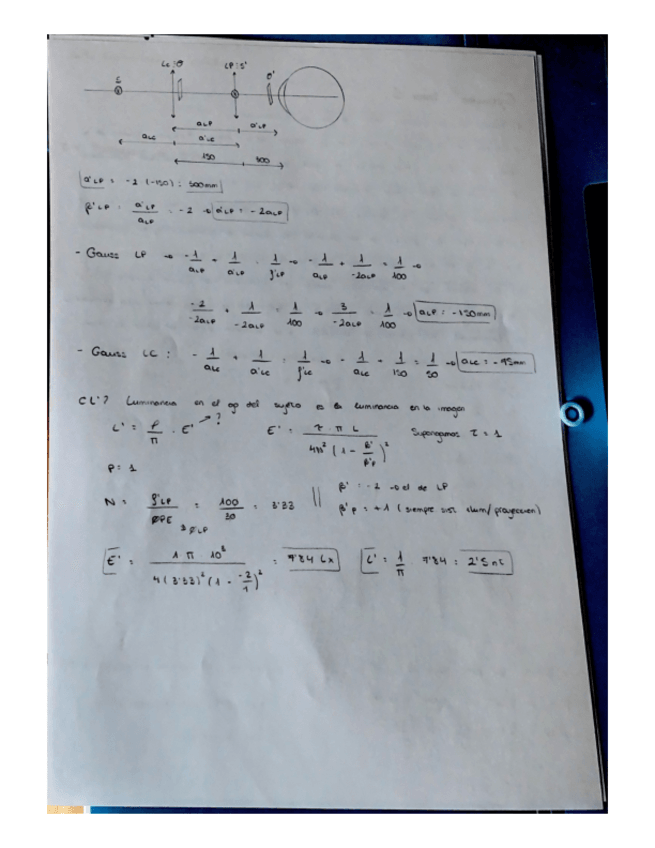 LC ≡ O LP ≡ S' O'
S
aLP a'LP
aLC a'LC
150 300
a'LP = -2 (-150) = 300mm
β'LP = a'LP/aLP = -2 → a'LP = -2aLP
- Gauss LP → -1/aLP + 1/a'LP = 1/f'LP → -1/aLP + 1/-2aLP = 1/100 →
-2/-2aLP + 1/-2aLP = 1/100 → 3/-2aLP = 1/100 → aLP = -150mm
- Gauss LC : -1/aLC + 1/a'LC = 1/f'LC → -1/aLC + 1/150 = 1/50 → aLC = -75mm
¿L'? Luminancia en el ojo del sujeto es la luminancia en la imagen
L' = ρ/π · E' → ? E' = τ · π L / 4N² (1 - β'/β'p)² Supongamos τ = 1
ρ = 1
N = f'LP/ØPE = 100/30 = 3'33 || β' = -2 → el de LP
≡ ØLP β'p = +1 (siempre sist. ilum/proyección)
E' = 1 π · 10³ / 4(3'33)² (1 - -2/1)² = 7'84 Lx L' = 1/π · 7'84 = 2'5 nt